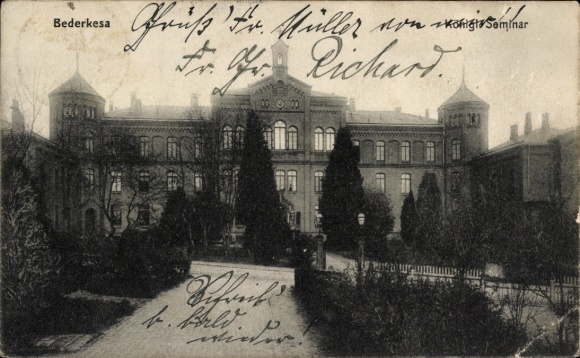 Bederkesa
Königl. Seminar
Gruß Fr. Müller von mir!
Fr. Gr. Richard.
Schreibe
b. bald
wieder!